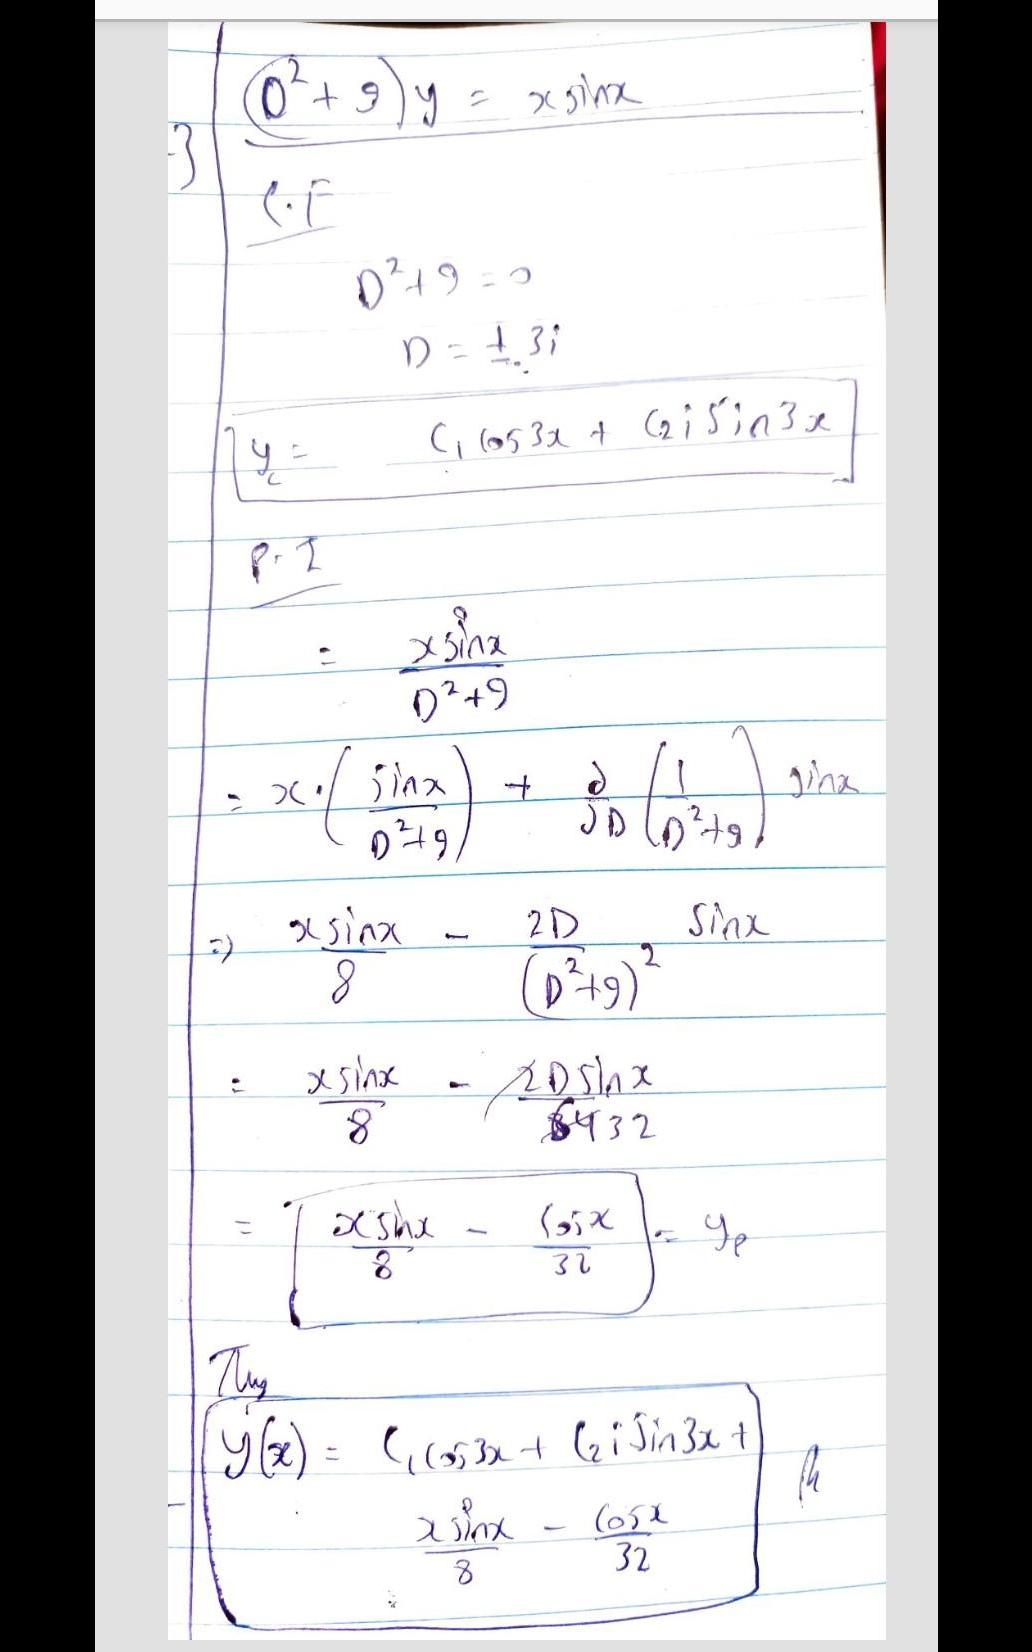 (D²+9)y = x sinx
C.F
D²+9=0
D = ± 3i
y_c = C₁ cos3x + C₂ i Sin3x
P.I
= x sinx / D²+9
= x.(sinx / D²+9) + d/dD (1 / D²+9) sinx
=> x sinx / 8 - 2D / (D²+9)² Sinx
= x sinx / 8 - 2D sinx / 64 32
= x sinx / 8 - Cosx / 32 = y_p
Thus
y(x) = C₁ cos3x + C₂ i Sin3x +
x sinx / 8 - Cosx / 32